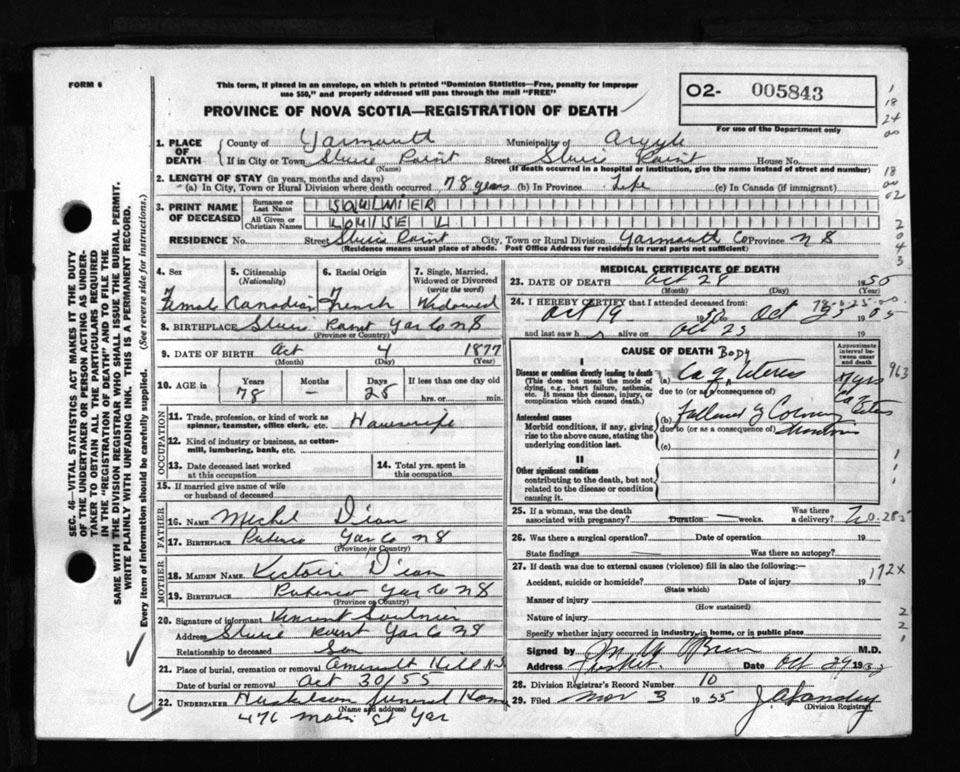 FORM 6
This form, if placed in an envelope, on which is printed "Dominion Statistics—Free, penalty for improper
use $50," and properly addressed will pass through the mail "FREE"
PROVINCE OF NOVA SCOTIA—REGISTRATION OF DEATH
O2- 005843
For use of the Department only
1. PLACE OF DEATH
County of Yarmouth Municipality of Argyle
If in City or Town Sluice Point Street Sluice Point House No.
(Name) (If death occurred in a hospital or institution, give the name instead of street and number)
2. LENGTH OF STAY (in years, months and days)
(a) In City, Town or Rural Division where death occurred 78 years (b) In Province Life (c) In Canada (if immigrant)
3. PRINT NAME OF DECEASED
Surname or Last Name SAULNIER
All Given or Christian Names LOUISE L
RESIDENCE No. Street Sluice Point City, Town or Rural Division Yarmouth Co Province N S
(Residence means usual place of abode. Post Office Address for residents in rural parts not sufficient)
4. Sex
Female
5. Citizenship (Nationality)
Canadian
6. Racial Origin
French
7. Single, Married, Widowed or Divorced (write the word)
Widowed
8. BIRTHPLACE Sluice Point Yar Co N S
(Province or Country)
9. DATE OF BIRTH Oct 4 1877
(Month) (Day) (Year)
10. AGE in
Years Months Days If less than one day old
78 — 25 hrs. or min.
OCCUPATION
11. Trade, profession, or kind of work as spinner, teamster, office clerk, etc. Housewife
12. Kind of industry or business, as cotton-mill, lumbering, bank, etc.
13. Date deceased last worked at this occupation
14. Total yrs. spent in this occupation
15. If married give name of wife or husband of deceased
FATHER
16. NAME Michel D'eon
17. BIRTHPLACE Pubnico Yar Co N S
(Province or Country)
MOTHER
18. MAIDEN NAME D'eon
19. BIRTHPLACE Pubnico Yar Co N S
(Province or Country)
20. Signature of informant Vincent Saulnier
Address Sluice Point Yar Co N S
Relationship to deceased Son
21. Place of burial, cremation or removal Amirault Hill N.S
Date of burial or removal Oct 30/55
22. UNDERTAKER Funeral Home
(Name and address)
476 Main St Yar
MEDICAL CERTIFICATE OF DEATH
23. DATE OF DEATH Oct 28 19
(Month) (Day) (Year)
24. I HEREBY CERTIFY that I attended deceased from:
Oct 19 19 Oct
and last saw h alive on Oct 23
CAUSE OF DEATH
Approximate interval between onset and death
I
Disease or condition directly leading to death
(This does not mean the mode of dying, e.g., heart failure, asthenia, etc. It means the disease, injury, or complication which caused death.)
(a) Ca of Body Uterus
due to (or as a consequence of)
Antecedent causes
Morbid conditions, if any, giving rise to the above cause, stating the underlying condition last.
(b)
due to (or as a consequence of)
(c)
II
Other significant conditions
contributing to the death, but not related to the disease or condition causing it.
25. If a woman, was the death associated with pregnancy? Duration weeks. Was there a delivery?
26. Was there a surgical operation? Date of operation 19
State findings Was there an autopsy?
27. If death was due to external causes (violence) fill in also the following:—
Accident, suicide or homicide? Date of injury 19
(State which)
Manner of injury
(How sustained)
Nature of injury
Specify whether injury occurred in industry, in home, or in public place
172X
Signed by M.D.
Address Date Oct 29 19
28. Division Registrar's Record Number 10
29. Filed Nov 3 1955
(Division Registrar)
SEC. 46—VITAL STATISTICS ACT MAKES IT THE DUTY
OF THE UNDERTAKER OR PERSON ACTING AS UNDER-
TAKER TO OBTAIN ALL THE PARTICULARS REQUIRED
IN THE "REGISTRATION OF DEATH" AND TO FILE THE
SAME WITH THE DIVISION REGISTRAR WHO SHALL ISSUE THE BURIAL PERMIT.
WRITE PLAINLY WITH UNFADING INK. THIS IS A PERMANENT RECORD.
Every item of information should be carefully supplied. (See reverse side for instructions.)